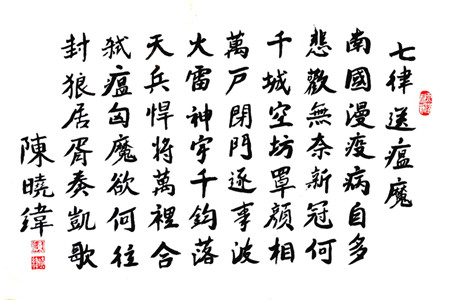 七律送瘟魔
南國漫疫病自多
悲歡無奈新冠何
千城空坊罩顏相
萬户閉門逐事波
火雷神宇千鈞落
天兵悍將萬裡合
弒瘟魔欲何往
封狼居胥奏凱歌
陳曉緯